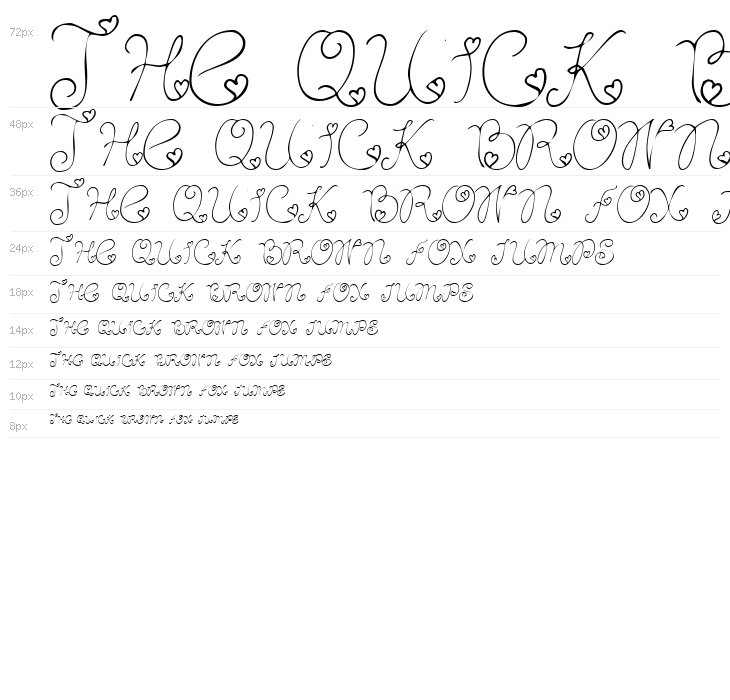 72px THE QUICK B
48px THE QUICK BROWN
36px THE QUICK BROWN FOX J
24px THE QUICK BROWN FOX JUMPS
18px THE QUICK BROWN FOX JUMPS
14px THE QUICK BROWN FOX JUMPS
12px THE QUICK BROWN FOX JUMPS
10px THE QUICK BROWN FOX JUMPS
8px THE QUICK BROWN FOX JUMPS